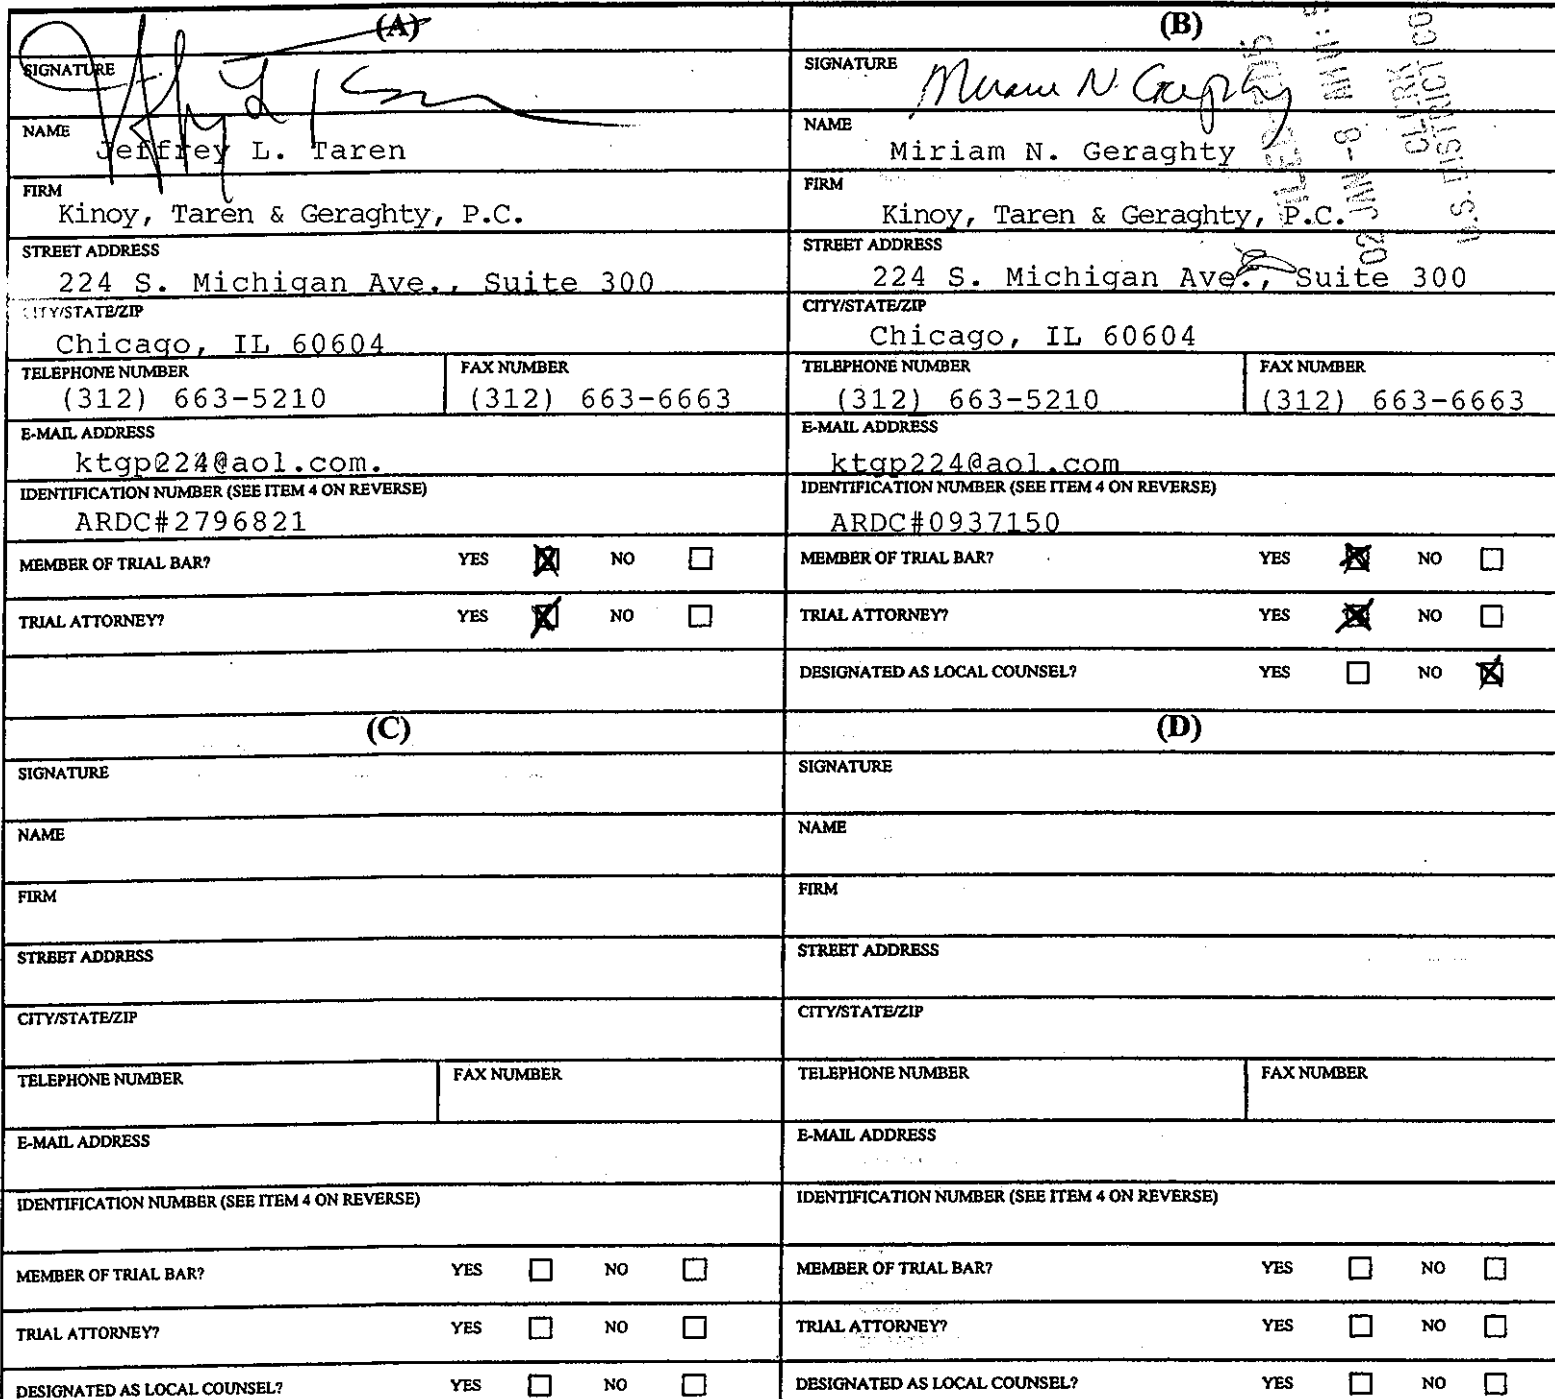 (A)
SIGNATURE
NAME
Jeffrey L. Taren
FIRM
Kinoy, Taren & Geraghty, P.C.
STREET ADDRESS
224 S. Michigan Ave., Suite 300
CITY/STATE/ZIP
Chicago, IL 60604
TELEPHONE NUMBER FAX NUMBER
(312) 663-5210 (312) 663-6663
E-MAIL ADDRESS
ktgp224@aol.com.
IDENTIFICATION NUMBER (SEE ITEM 4 ON REVERSE)
ARDC#2796821
MEMBER OF TRIAL BAR? YES NO
TRIAL ATTORNEY? YES NO
(B)
SIGNATURE
Miriam N. Geraghty
NAME
Miriam N. Geraghty
FIRM
Kinoy, Taren & Geraghty, P.C.
STREET ADDRESS
224 S. Michigan Ave., Suite 300
CITY/STATE/ZIP
Chicago, IL 60604
TELEPHONE NUMBER FAX NUMBER
(312) 663-5210 (312) 663-6663
E-MAIL ADDRESS
ktgp224@aol.com
IDENTIFICATION NUMBER (SEE ITEM 4 ON REVERSE)
ARDC#0937150
MEMBER OF TRIAL BAR? YES NO
TRIAL ATTORNEY? YES NO
DESIGNATED AS LOCAL COUNSEL? YES NO
CLERK
U.S. DISTRICT
(C)
SIGNATURE
NAME
FIRM
STREET ADDRESS
CITY/STATE/ZIP
TELEPHONE NUMBER FAX NUMBER
E-MAIL ADDRESS
IDENTIFICATION NUMBER (SEE ITEM 4 ON REVERSE)
MEMBER OF TRIAL BAR? YES NO
TRIAL ATTORNEY? YES NO
DESIGNATED AS LOCAL COUNSEL? YES NO
(D)
SIGNATURE
NAME
FIRM
STREET ADDRESS
CITY/STATE/ZIP
TELEPHONE NUMBER FAX NUMBER
E-MAIL ADDRESS
IDENTIFICATION NUMBER (SEE ITEM 4 ON REVERSE)
MEMBER OF TRIAL BAR? YES NO
TRIAL ATTORNEY? YES NO
DESIGNATED AS LOCAL COUNSEL? YES NO